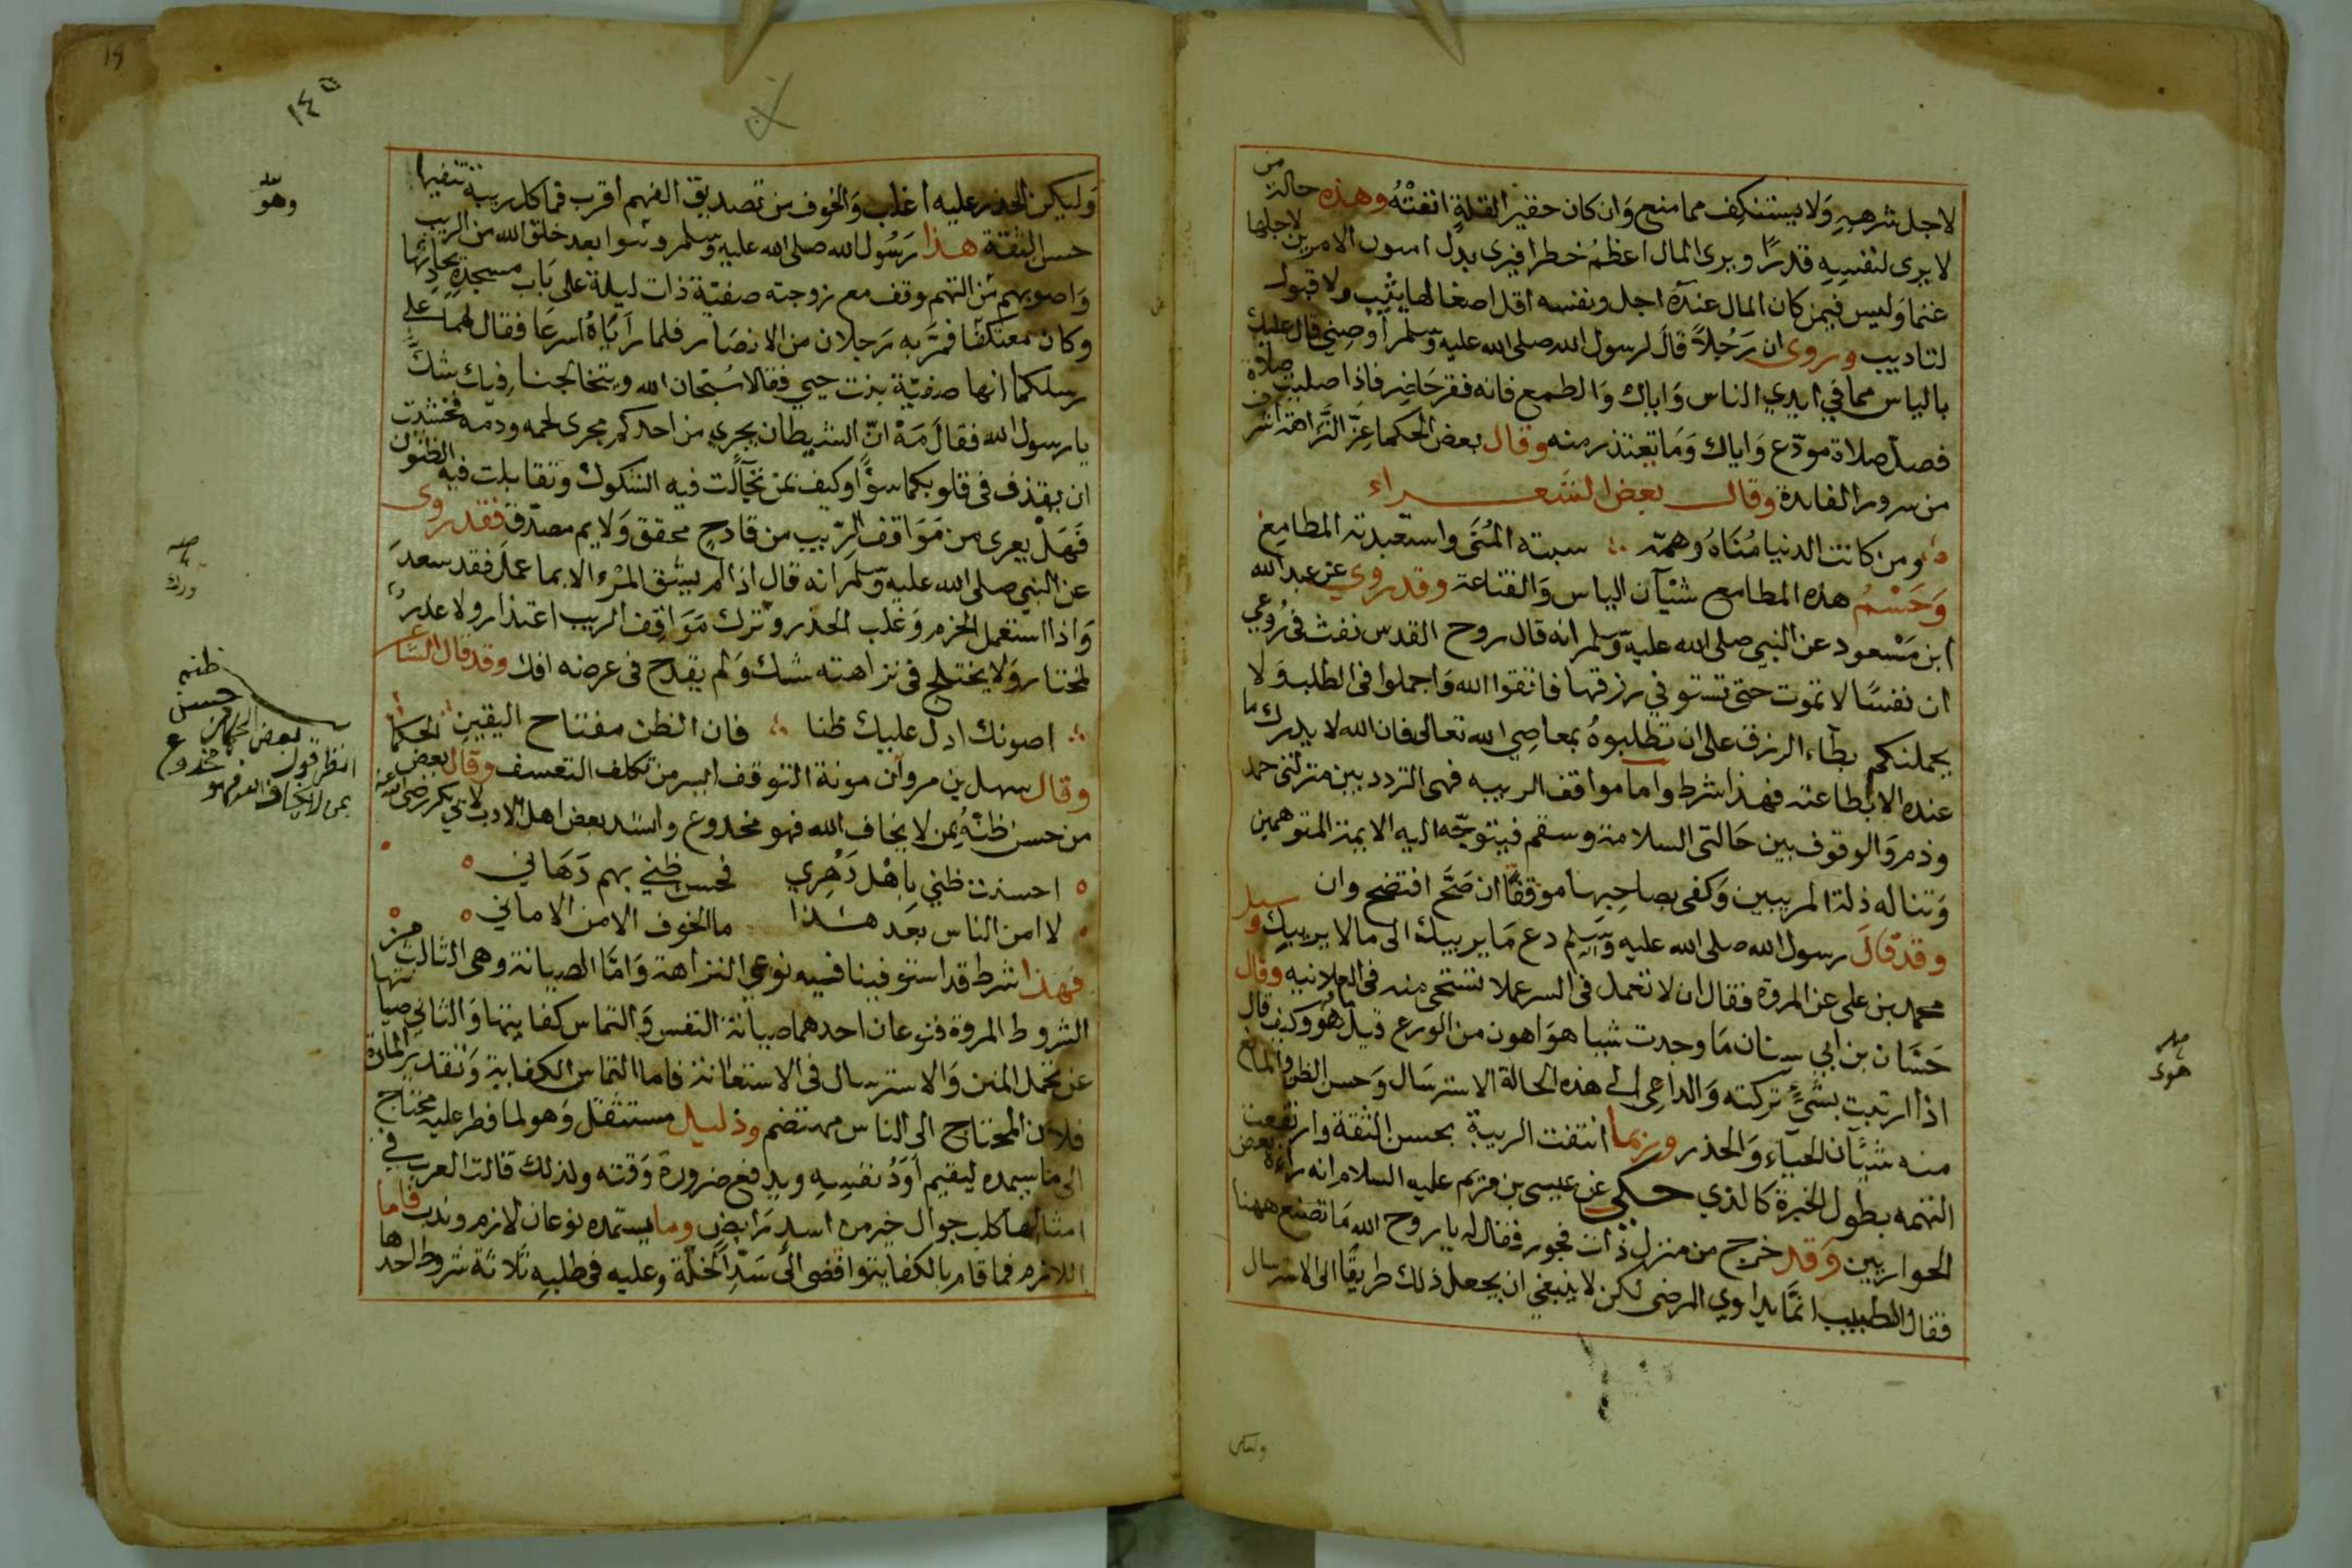 لاجل شرهه ولا يستنكف مما منع وان كان حقير القلة انفته وهذه حالة من
لا يرى لنفسه قدرًا ويرى المال اعظم خطرا فيرى بدل اهون الامرين لاجلها
غنما وليس فيمن كان المال عنده اجل ونفسه اقل اصغا لتانيب ولا قبول
لتاديب وروى ان رجلاً قال لرسول الله صلى الله عليه وسلم أوصني قال عليك
بالياس مما في ايدي الناس واياك والطمع فانه فقر حاضر فاذا صليت صلاة
فصل صلاة مودّع واياك وما تعتذر منه وقال بعض الحكما عزّ النزاهة اشرف
من سرور الفايدة وقال بعض الشعراء
ومن كانت الدنيا مُناهُ وهمّه سبته المُنَى واستعبدته المطامع
وَحَسْمُ هذه المطامع شيْآن الياس والقناعة وقد روي عن عبد الله
ابن مسعود عن النبي صلى الله عليه وسلم انه قال روح القدس نفث في رُوعي
ان نفسًا لا تموت حتى تستوفي رزقها فاتقوا الله واجملوا في الطلب ولا
يحملنكم بطآء الرزق على ان تطلبوهُ بمعاصِي الله تعالى فان الله لا يدرك ما
عنده الا بطاعته فهذا شرط واما مواقف الريبه فهى التردد بين منزلتى حمد
وذم والوقوف بين حالتى السلامة وسقم فيتوجّه اليه الايمة المتوهمين
وتناله ذلة المريبين وكفى بصاحبها موقفًا ان صَحَّ افتضح وان
وقد قال رسول الله صلى الله عليه وسلم دع ما يريبك الى مالا يريبك وسيل
محمد بن على عن المروة فقال ان لا تعمل فى السر عملا تستحى منه فى العلانيه وقال
حسّان بن ابي سنان ما وجدت شيا هو اهون من الورع قيل له وكيف قال
اذا ارتبت بشيءٍ تركته والداعِى الى هذه الحالة الاسترسال وحسن الظن والمانع
منه شيّآن الحياء والحذر وربما انتفت الريبة بحسن الثقة وارتفعت
التهمه بطول الخبرة كالذي حكي عن عيسى بن مريم عليه السلام انه رآهُ بعض
الحواريين وقد خرج من منزل ذات فجور فقال له يا روح الله ما تصنع ههنا
فقال الطبيب انمّا يداوي المرضى لكن لا ينبغي ان يجعل ذلك طريقًا الى الاسترسال
هوى
وليكن
١٤٥
19
وليكن الحذر عليه اغلب والخوف من تصديق الفهم اقرب فما كل ريبة تنفيها
حسن الثقة هذا رسُول الله صلى الله عليه وسلم وهو ابعد خلق الله من الريب
واصوبهم من التهم وقف مع زوجته صفيّة ذات ليلة على باب مسجده يحادثها
وكان معتكفًا فمرّ به رجلان من الانصار فلما رأياهُ اسرعَا فقال لهما على
رسلكما انها صفيّة بنت حيي فقالا سُبحان الله ويتخالجنا فيك شكٌّ
يا رسول الله فقال مَهْ انّ الشيطان يجري من احدكم مجرى لحمه ودمه فخشيت
ان يقذف فى قلوبكما سوًا وكيف بمن تخالَّت فيه الشكوك وتقابلت فيه الظنون
فهَلْ يعرى من مواقف الرّيب من قادحٍ محقق ولايم مصدّق فقد روى
عن النبي صلى الله عليه وسلم انه قال اذا لم يشق المرْء الا بما عمل فقد سعد
واذا استعمل الحزم وغلب الحذر وترك مواقف الريب اعتذار ولا عذر
لمختار ولا يختلج فى نزاهته شك ولم يقدح فى عرضه افك وقد قال الشاعر
اصونك ادل عليك ظنا فان الظن مفتاح اليقين
وقال سهل بن مروان مونة التوقف ايسر من تكلف التعسف وقال بعض الحكما
من حسن ظنّهُ بمن لا يخاف الله فهو مخدوع وانشد بعض اهل الادب لابي بكر رضى الله عنه
احسنت ظني باهْل دَهْري فحسن ظني بهم دَهَاني
لا امن الناس بعد هذا ما الخوف الا من الاماني
فهذا شرط قد استوفينا فيه نوعي النزاهة وامّا الصيانة وهى الثالث من
الشروط المروة فنوعان احدهما صيانة النفس والتماس كفايتها والثاني صيانتها
عن تحمل المنن والاسترسال فى الاستعانة فاما التماس الكفاية وتقدير المادة
فلان المحتاج الى الناس مهتضم وذليل مستثقل وهو لما فطر عليه محتاج
الى ما يسمده ليقيم أوَدُ نفسِه ويدفع ضرورة وقته ولذلك قالت العرب في
امثالها كلب جوال خير من اسد رابض وما يستمده نوعان لازم وندب فاما
اللازم فما قام بالكفاية وافضى الى سَدّ الخلّة وعليه فى طلبه ثلاثة شروط احدها
وهو
ورك
ظنه
حسن
انظر قول بعض الحكما من
بمن لا يخاف الله فهو مخدوع